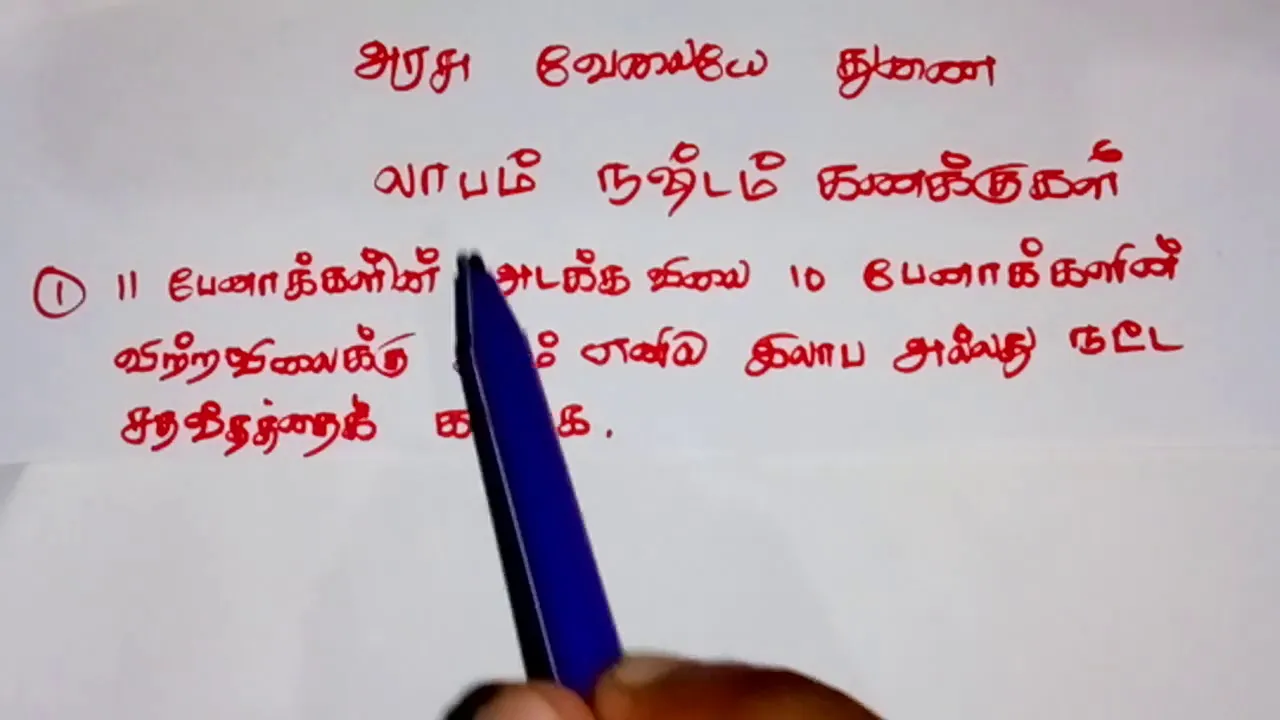 அரசு வேலையே துணை
லாபம் நஷ்டம் கணக்குகள்
① 11 பேனாக்களின் அடக்க விலை 10 பேனாக்களின்
விற்றவிலைக்கு எனில் இலாப அல்லது நட்ட
சதவீதத்தைக்